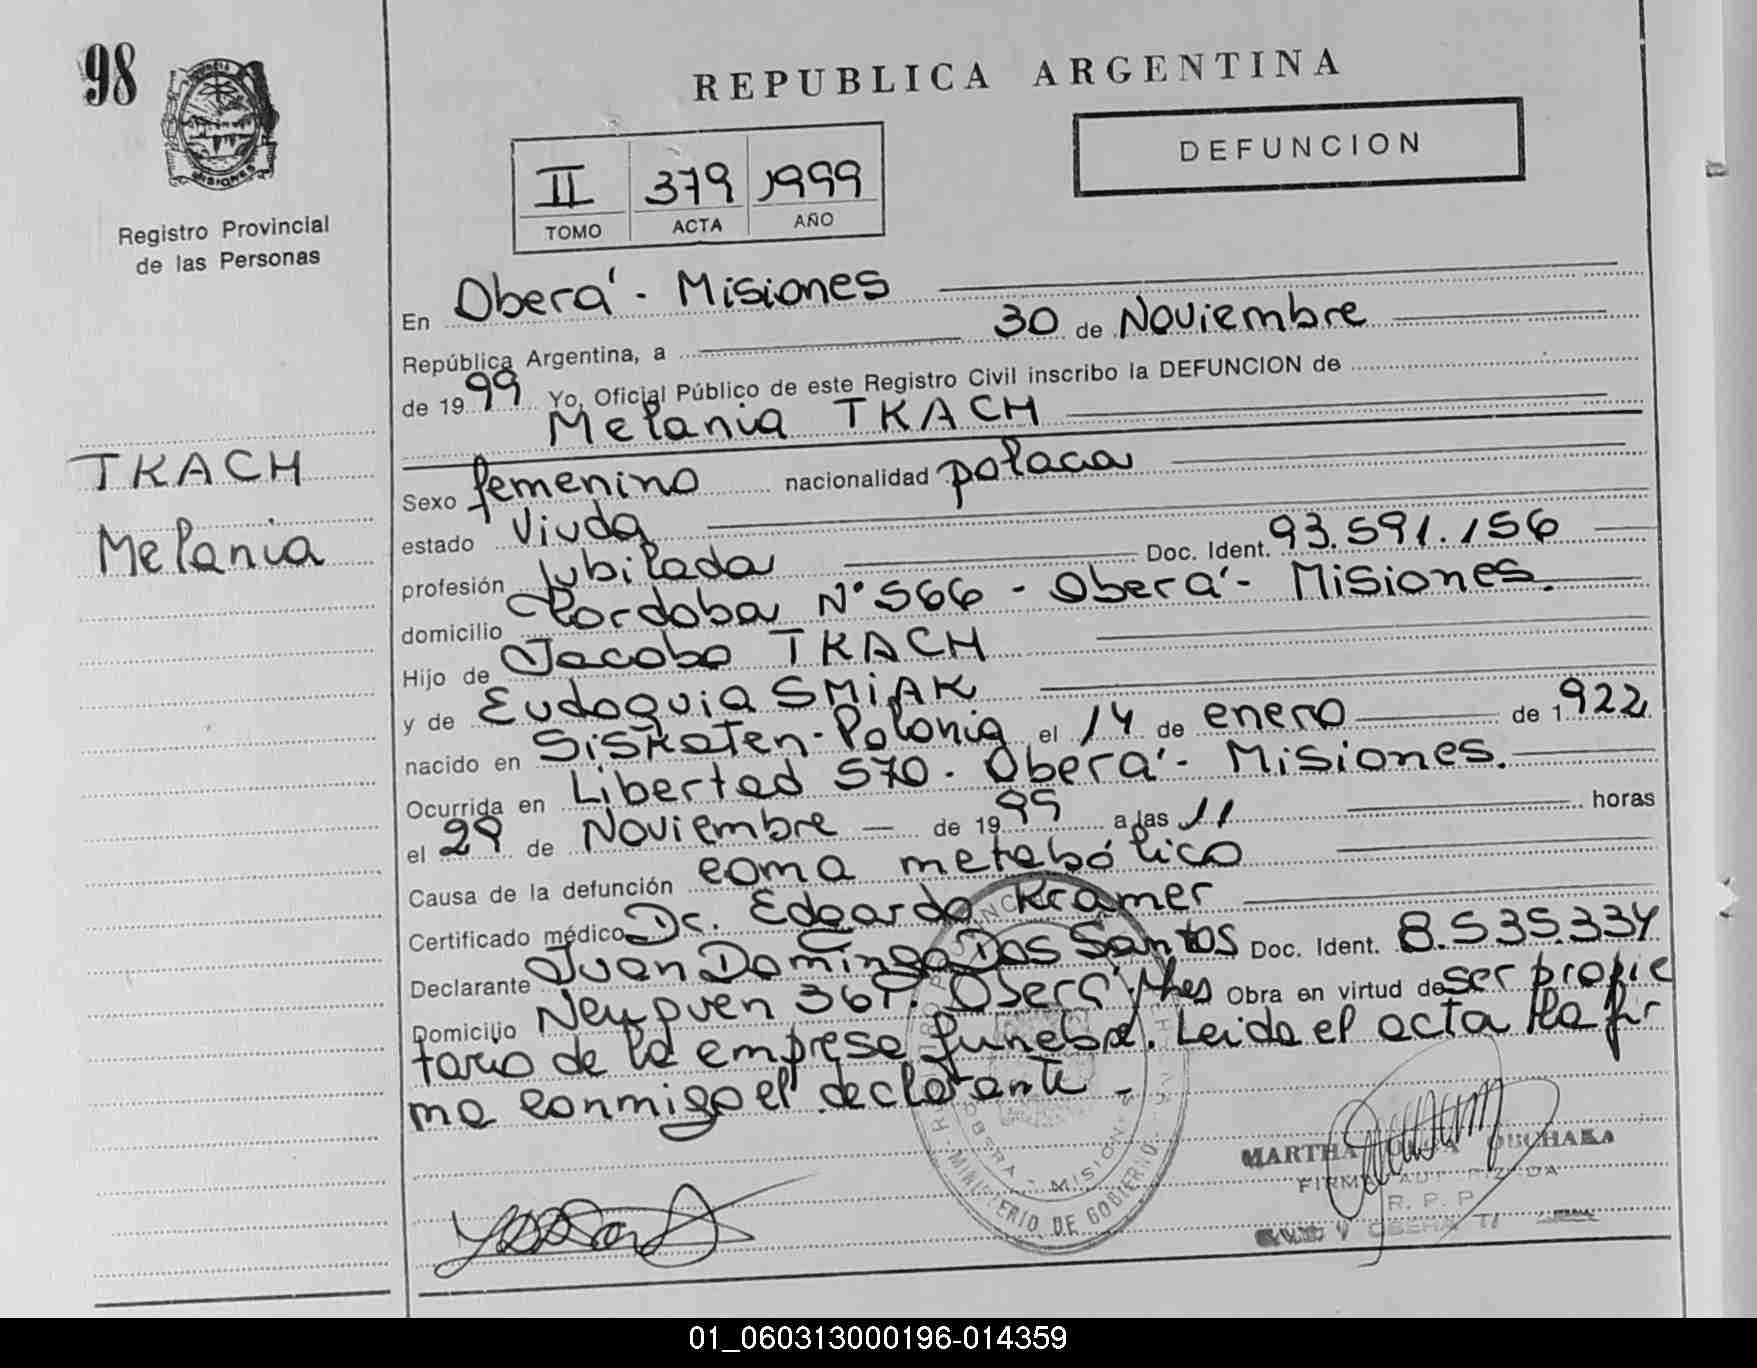 98
REPUBLICA ARGENTINA
DEFUNCION
II 379 1999
TOMO ACTA AÑO
MISIONES
Registro Provincial
de las Personas
TKACH
Melania
En Oberá - Misiones
República Argentina, a 30 de Noviembre
de 1999 Yo, Oficial Público de este Registro Civil inscribo la DEFUNCION de
Melania TKACH
Sexo femenino nacionalidad polaca
estado Viuda
profesión Jubilada Doc. Ident. 93.591.156
domicilio Cordoba N° 566 - Oberá - Misiones.
Hijo de Jacobo TKACH
y de Eudoquia SMiAK
nacido en Siskoten - Polonia el 14 de enero de 1922
Ocurrida en Libertad 570 - Oberá - Misiones.
el 29 de Noviembre de 1999 a las 11 horas
Causa de la defunción coma metabólico
Certificado médico Dr. Edgardo Kramer
Declarante Juan Domingo Dos Santos Doc. Ident. 8.535.334
Domicilio Neuquen 367. Oberá Mnes Obra en virtud de ser propie
tario de la empresa funebre. Leida el acta la fir
ma conmigo el declarante -
MINISTERIO DE GOBIERNO
MARTHA
FIRMA AUTORIZADA
R. P. P.
OBERA
01_060313000196-014359